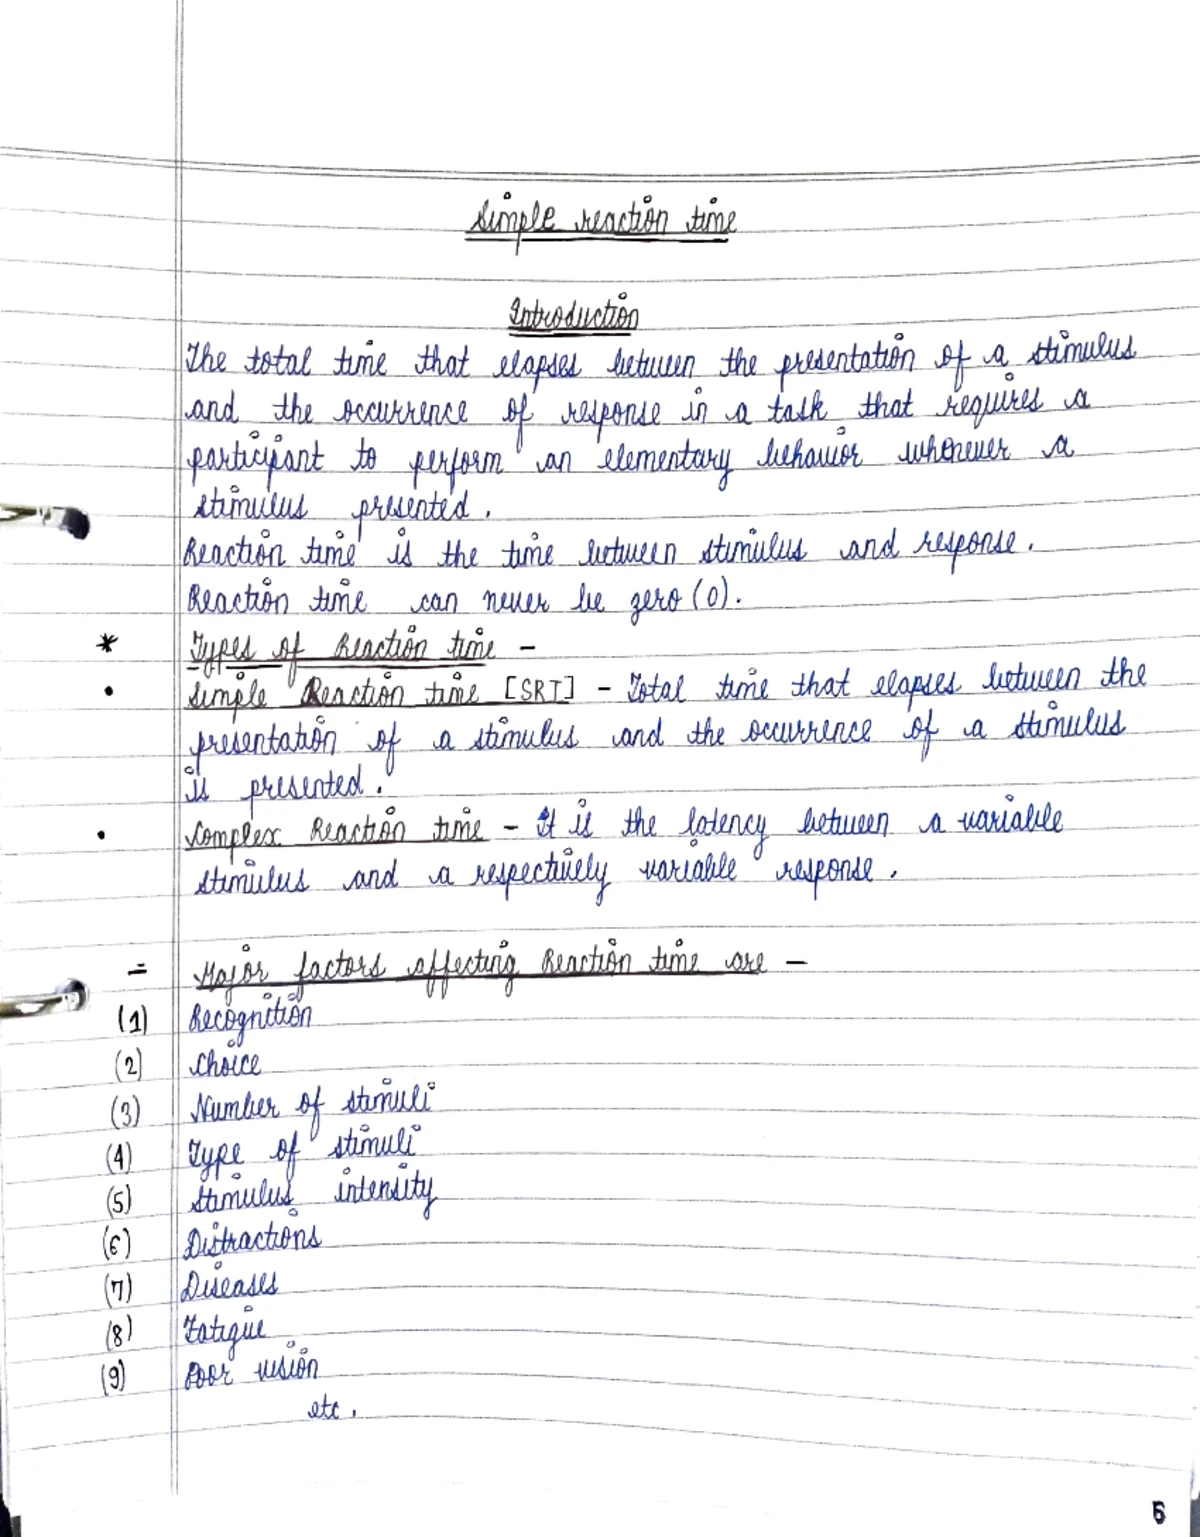 Simple reaction time
Introduction
The total time that elapses between the presentation of a stimulus
and the occurrence of response in a task that requires a
participant to perform an elementary behavior whenever a
stimulus presented.
Reaction time is the time between stimulus and response.
Reaction time can never be zero (0).
* Types of Reaction time –
• Simple Reaction time [SRT] – Total time that elapses between the
presentation of a stimulus and the occurrence of a stimulus
is presented.
• Complex Reaction time – It is the latency between a variable
stimulus and a respectively variable response.
= Major factors affecting Reaction time are –
(1) Recognition
(2) Choice
(3) Number of stimuli
(4) Type of stimuli
(5) Stimulus intensity
(6) Distractions
(7) Diseases
(8) Fatigue
(9) Poor vision
etc.
5